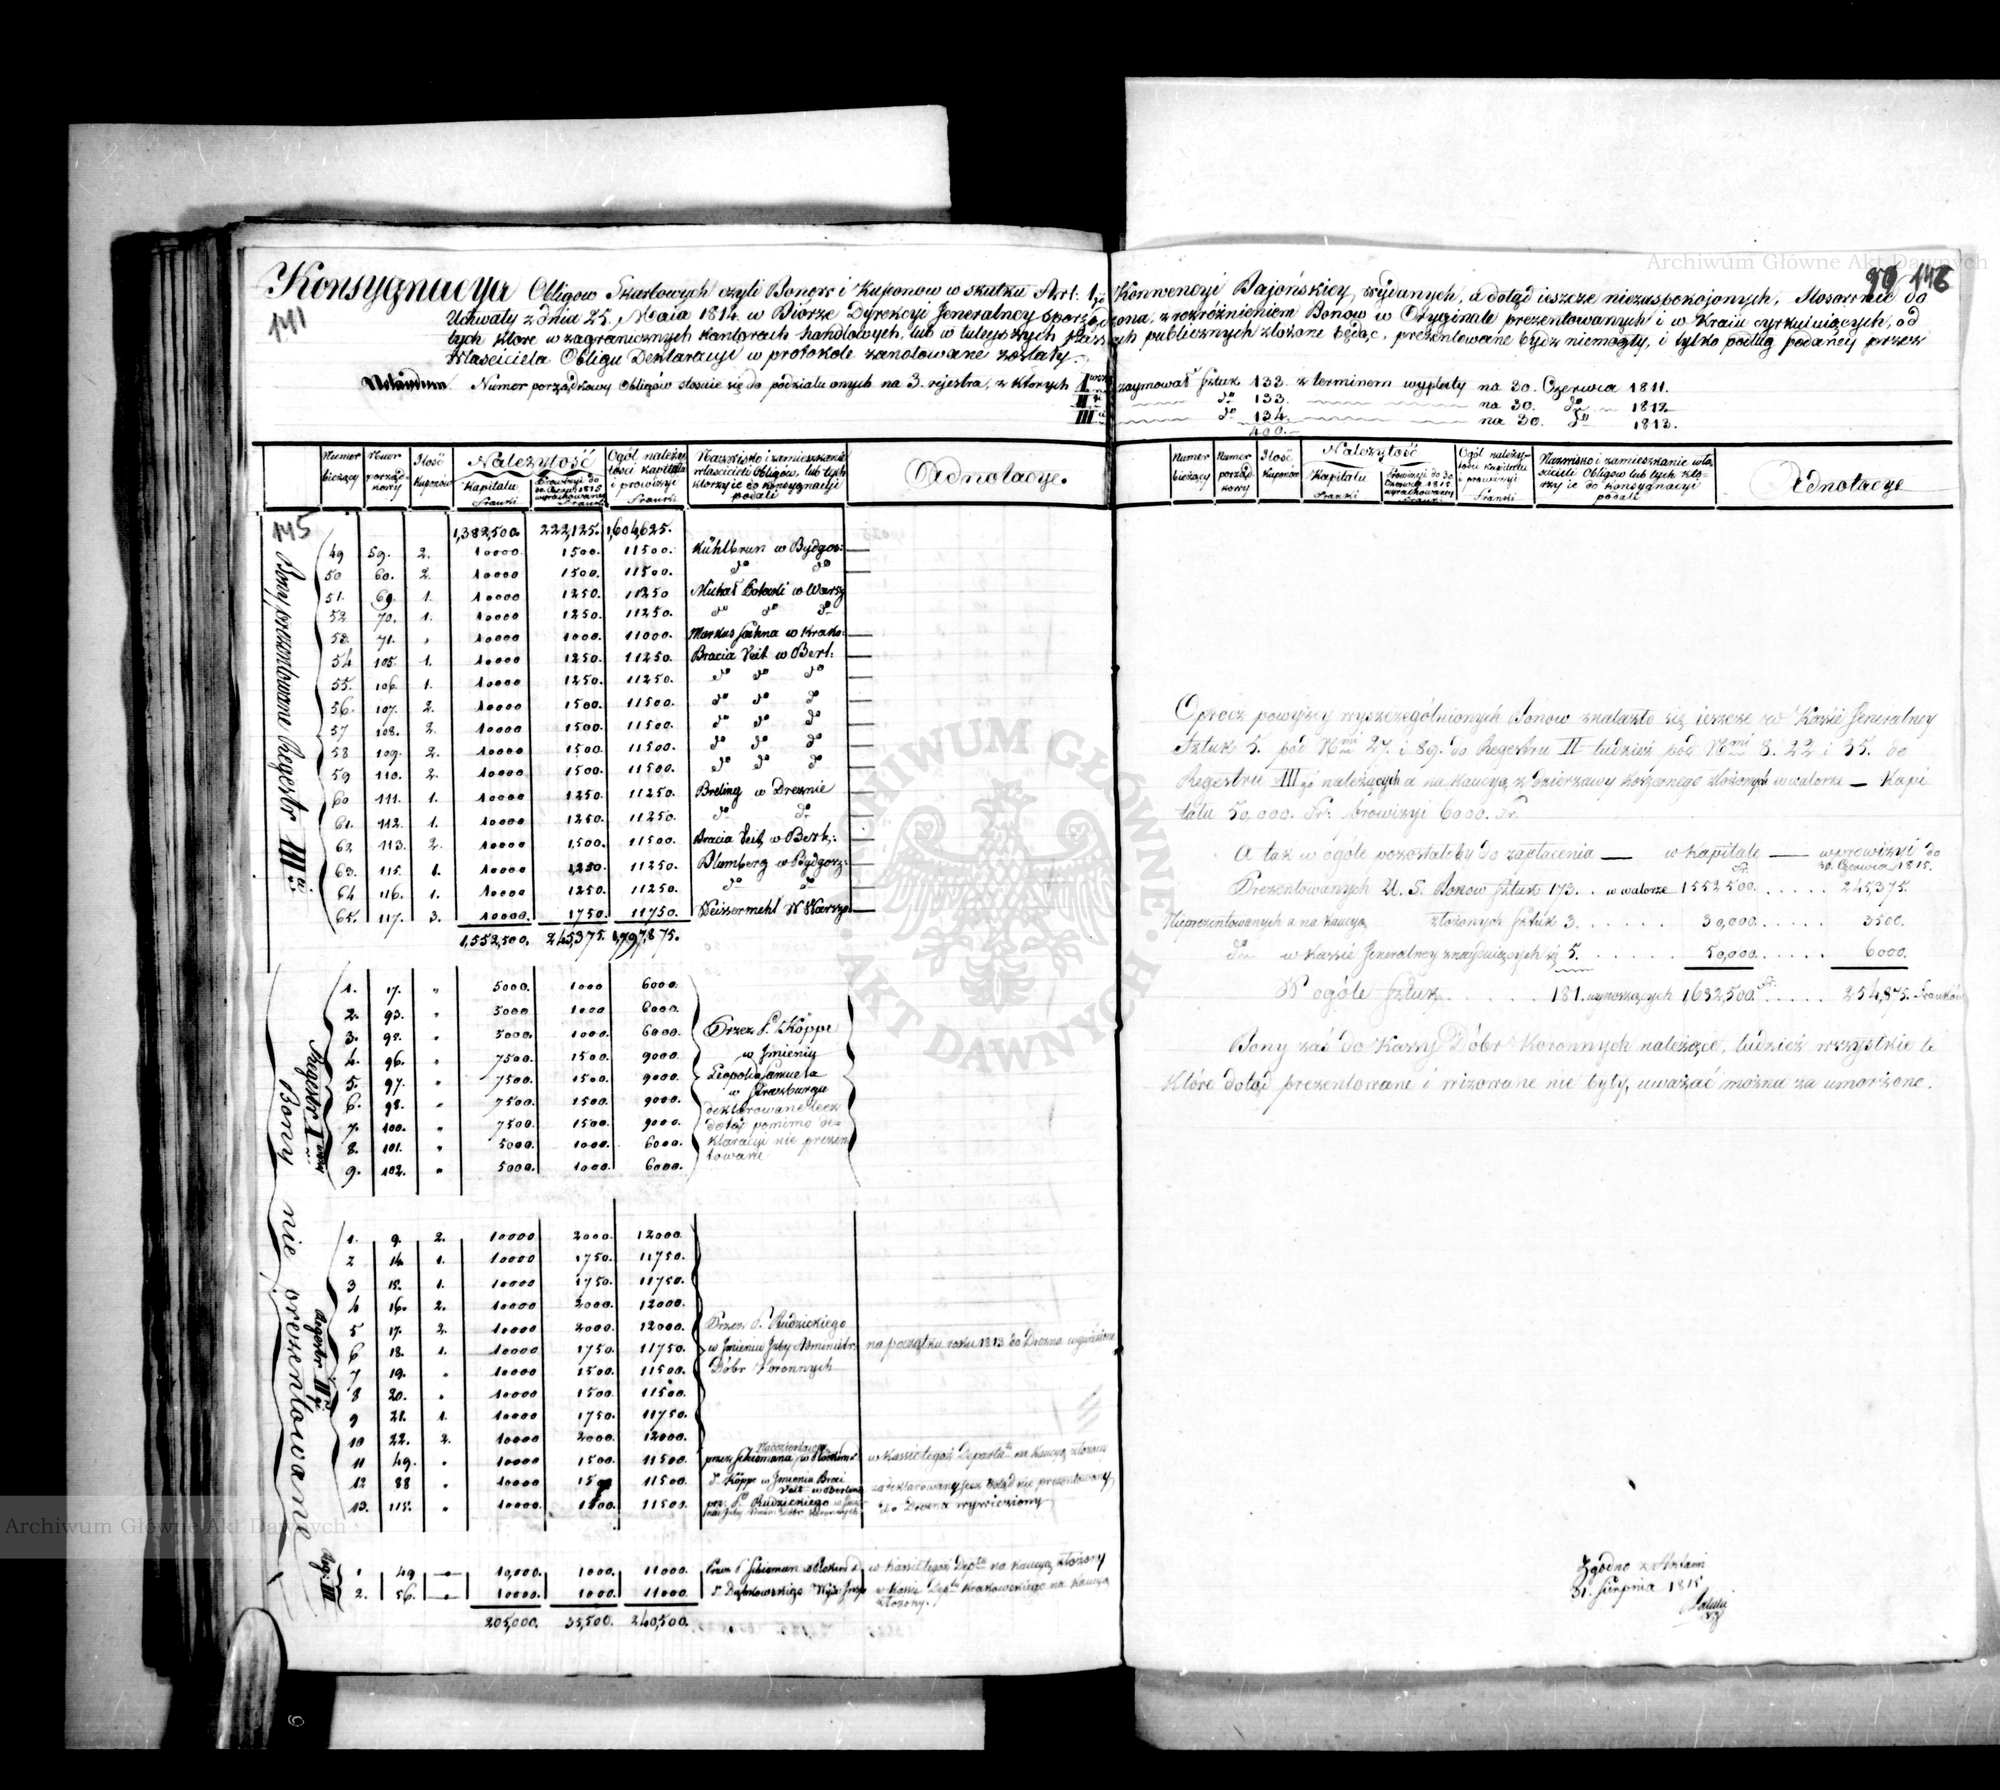 Archiwum Główne Akt Dawnych
99 146
141
Konsygnacya Obligow Skarbowych czyli Bonow i Kuponow w skutku Art: 1go Konwencyi Bajońskiey, wydanych, a dotąd ieszcze niezaspokojonych, stosownie do
Uchwały z dnia 25. Maia 1814. w Biórze Dyrekcyi Jeneralney sporządzona, z rozróżnieniem Bonow w Oryginale prezentowanych i w Kraiu cyrkuluiących, od
tych które w zagranicznych kantorach handlowych, lub w tuteyszych Kassach publicznych złożone będąc, prezentowane bydz niemogły, i tylko podług podaney przez
Właściciela Obligu Deklaracyi w protokole zanotowane zostały.
Notandum. Numer porządkowy Obligów stosuie się do podziału onych na 3. rejestra, z których I wszy zaymował sztuk 133 z terminem wypłaty na 30. Czerwca 1811.
II gi do 133. na 30. do 1812
III ci do 134. na 30. do 1813.
400.
Numer bieżący Numer porządkowy Ilość kuponów Należytość Kapitału Franki Prowizyi do 30. Czerwca 1815 wyrachowane Franki Ogół należytości kapitału i prowizyi Franki Nazwisko i zamieszkanie właścicieli Obligów, lub tych którzy ie do konsygnacyi podali Adnotacye.
Numer bieżący Numer porządkowy Ilość kuponów Należytość Kapitału Franki Prowizyi do 30 Czerwca 1815 wyrachowane Franki Ogół należytości kapitału i prowizyi Franki Nazwisko i zamieszkanie właścicieli Obligów lub tych którzy ie do konsygnacyi podali Adnotacye
145
Bony prezentowane Regestr III ci
1,382,500. 222,125. 1,604,625.
49 59. 2. 10000 1500. 11500. Kühlbrun w Bydgos:
50 60. 2. 10000 1500. 11500. do do
51. 69. 1. 10000 1250. 11250 Michał w Warsz
52 70. 1. 10000 1250. 11250. do do do
53. 71. " 10000 1000. 11000. Markus w Krako:
54 105. 1. 10000 1250. 11250. Bracia Veit w Berl:
55. 106. 1. 10000 1250. 11250. do do do
56. 107. 2. 10000 1500. 11500. do do do
57 108. 2. 10000 1500. 11500. do do do
58 109. 2. 10000 1500. 11500. do do do
59 110. 2. 10000 1500. 11500. do do do
60 111. 1. 10000 1250. 11250. Breling w Dreznie
61. 112. 1. 10000 1250. 11250. do do
62. 113. 2. 10000 1,500. 11500. Bracia Veit w Berl:
63. 115. 1. 10000 1250. 11250. Blumberg w Bydgosz:
64 116. 1. 10000 1250. 11250. do do
65. 117. 3. 10000. 1750. 11750. Weissermehl w Warsz
1,552,500. 245,375. 1,797,875.
Bony nie prezentowane
Regestr I wszy
1. 17. " 5000. 1000 6000.
2. 93. " 5000 1000 6000.
3. 95. " 5000. 1000. 6000. Przez P. Köppe
4. 96. " 7500. 1500. 9000. w Jmieniu
5. 97. " 7500. 1500. 9000. Leopolda Samuela
6. 98. " 7500 1500. 9000. w Strazburgu
7. 100. " 7500 1500. 9000. deklarowane lecz
8. 101. " 5000. 1000. 6000. dotąd pomimo de-
9. 102. " 5000. 1000. 6000. klaracyi nie prezen
towane
Regestr II gi
1. 9. 2. 10000 2000. 12000.
2 14. 1. 10000 1750. 11750.
3 15. 1. 10000 1750. 11750.
4 16. 2. 10000 2000. 12000.
5 17. 2. 10000 2000. 12000. Przez P. Rudzickiego
6 18. 1. 10000 1750. 11750. w Jmieniu Jzby Administr: na początku roku 1813 do Drezna wywiezione
7 19. " 10000 1500. 11500. Dóbr Koronnych
8 20. " 10000 1500. 11500.
9 21. 1. 10000 1750. 11750.
10 22. 2. 10000 2000. 12000.
11 49. " 10000 1500. 11500. przez Schumana w Kassie tegoż Departtu na kaucyą złożony
12 88 " 10000 1500 11500. P. Köppe w Jmieniu Braci Veit w Berlinie zadeklarowany lecz dotąd nie prezentowany
13. 115. " 10000. 1500. 11500. prz: P. Rudzickiego do Drezna wywieziony
Reg: III
1 49 — 10,000. 1000. 11000. Przez P Schuman w Kassie tegoż Deptu na kaucyą złożony
2. 56. — 10000. 1000. 11000 P. Dąbkowskiego w Kassie Deptu Krakowskiego na kaucyą
złożony.
205,000. 35,500. 240,500.
Oprocz powyżey wyszczególnionych Bonow znalazło się ieszcze w Kassie Jeneralney
Sztuk 5. pod Nrmi 27. i 89. do Regestru II tudzież pod Nrmi 8. 22 i 35. do
Regestru III go należących a na kaucyą z Dzierzawy koszernego złożonych w walorze — Kapi
tału 50,000. Fr: Prowizyi 6000. Fr.
A tak w ogóle pozostałoby do zapłacenia — w kapitale — w prowizyi do
30. Czerwca 1815.
Prezentowanych U. S. Bonow sztuk 173. . w walorze 1552500. . . . . . 245,375.
Nieprezentowanych a na kaucyą złożonych sztuk 3. . . . . . . 30,000. . . . . . 3500.
do w Kassie Jeneralney znayduiących się 5. . . . . . . 50,000. . . . . . 6000.
W ogóle sztuk . . . . . . 181. wynoszących 1632,500. Fr. . . . . . 254,875. Franków
Bony zaś do Kassy Dóbr Koronnych należące, tudzież wszystkie te
które dotąd prezentowane i wizowane nie były, uważać można za umorzone.
Zgodno z Aktami
31. Sierpnia 1815
ARCHIWUM GŁÓWNE AKT DAWNYCH
Archiwum Główne Akt Dawnych
9